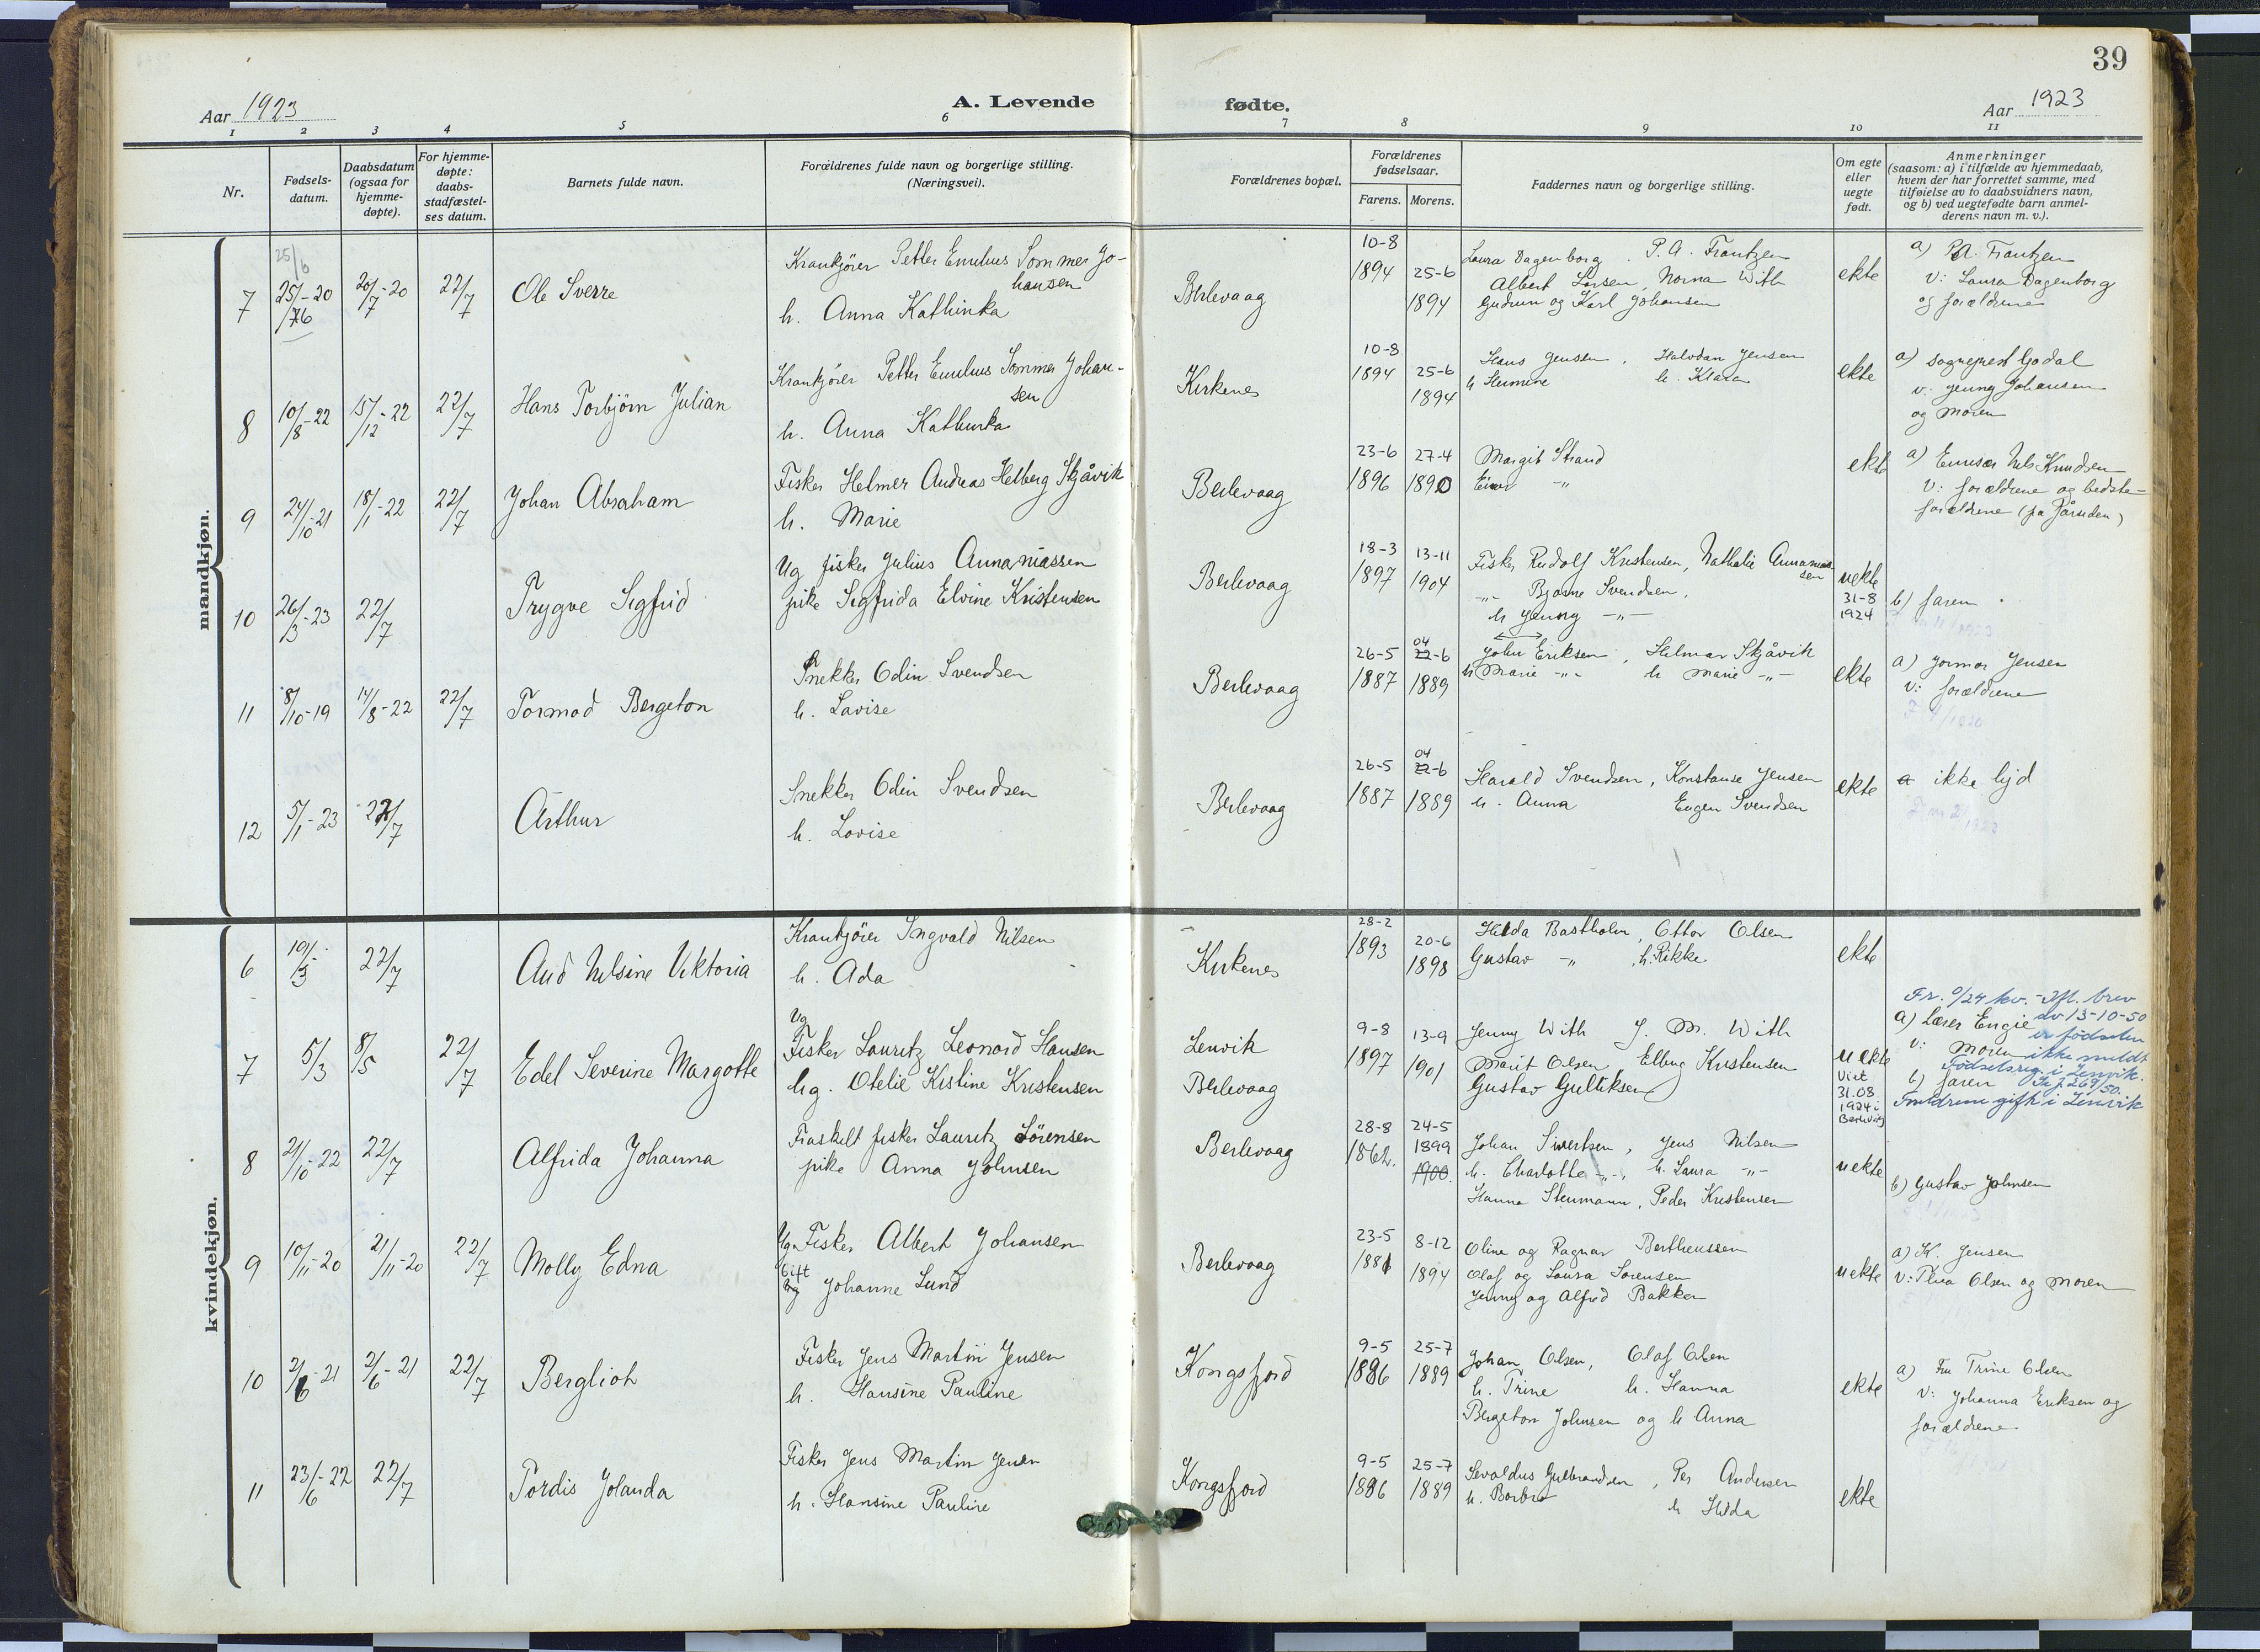 39
Aar 1923
A. Levende
fødte.
Aar 1923
1 2 3 4 5 6 7 8 9 10 11
Nr.
Fødsels-
datum.
Daabsdatum
(ogsaa for
hjemme-
døpte).
For hjemme-
døpte:
daabs-
stadfæstel-
ses datum.
Barnets fulde navn.
Forældrenes fulde navn og borgerlige stilling.
(Næringsvei).
Forældrenes bopæl.
Forældrenes
fødselsaar.
Farens. Morens.
Faddernes navn og borgerlige stilling.
Om egte
eller
uegte
født.
Anmerkninger
(saasom: a) i tilfælde av hjemmedaab,
hvem der har forrettet samme, med
tilføielse av to daabsvidners navn,
og b) ved uegtefødte barn anmel-
derens navn m. v.).
mandkjøn.
25/6
7 25/6-20 20/7-20 22/7 Ole Sverre
Krankjører Petter Emilius Sommer Jo-
hansen
h. Anna Kathinka
Berlevaag
10-8 1894
25-6 1894
Laura Dagenborg . P. A. Frantzen
Albert Larsen, Norna With
Gudrun og Karl Johansen
ekte
a) P.A. Frantzen
v: Laura Dagenborg
og forældrene
8 10/8-22 15/12-22 22/7 Hans Torbjørn Julian
Krankjører Petter Emilius Sommer Johan-
sen
h. Anna Kathinka
Kirkenes
10-8 1894
25-6 1894
Hans Jensen, Halvdan Jensen
h Hermine h. Klara
ekte
a) sogneprest Godal
v: Jenny Johansen
og moren
9 24/10-21 18/1-22 22/7 Johan Abraham
Fisker Helmer Andreas Helberg Skjåvik
h. Marie
Berlevaag
23-6 1896
27-4 1890
Margit Strand
Einar -"-
ekte
a) Emissær Nils Knudsen
v: forældrene og bedste-
forældrene (på farsiden)
10 26/3-23 22/7 Trygve Sigfrid
Ug fisker Julius Annaniassen
pike Sigfrida Elvine Kristensen
Berlevaag
18-3 1897
13-11 1904
Fisker Rudolf Kristensen, Nathalie Annanias-
sen
-"- Bjarne Svendsen,
h Jenny -"-
uekte
31-8
1924
b) faren
11 8/10-19 14/8-22 22/7 Tormod Bergeton
Snekker Odin Svendsen
h. Lovise
Berlevaag
26-5 1887
04
22-6 1889
John Eriksen, Helmar Skjåvik
h Marie -"- h Marie -"-
ekte
a) Jormor Jensen
v: forældrene
12 5/1-23 22/7 Arthur
Snekker Odin Svendsen
h. Lovise
Berlevaag
26-5 1887
04
22-6 1889
Harald Svendsen, Konstanse Jensen
h. Anna Eugen Svendsen
ekte
a ikke hjd
kvindekjøn.
6 19/3 22/7 Aud Nilsine Viktoria
Krankjører Ingvald Nilsen
h. Ada
Kirkenes
28-2 1893
20-6 1898
Hilda Bastholm, Ottor Olsen
Gustav -"- , h. Rikke
ekte
7 5/3 8/5 22/7 Edel Severine Margotte
Ug
Fisker Lauritz Leonard Hansen
Ug. Otelie Kristine Kristensen
Lenvik
Berlevaag
9-8 1897
13-9 1901
Jenny With J. M. With
Marit Olsen Elbug Kristensen
Gustav Gulliksen
uekte
Viet
31.08
1924 i
Berlevåg
Fr. 9/24 kv. - Ifl. brev
av 13-10-50
er födselen
ikke meldt
Födselsreg. i Lenvik.
Foreldrene gift i Lenvik
a) Lærer Engie
v: moren
b) faren
8 21/10-22 22/7 Alfrida Johanna
Fraskilt fisker Lauritz Sørensen
pike Anna Johnsen
Berlevaag
28-8 1862.
24-5 1899
1900.
Johan Sivertsen, Jens Nilsen
h. Charlotte -"-, h. Laura -"-
Hanna Stenmann, Peder Kristensen
uekte
b) Gustav Johnsen
9 10/11-20 21/11-20 22/7 Molly Edna
Ug. Fisker Albert Johansen
Gift
Ug Johanne Lund
Berlevaag
23-5 1881
8-12 1894
Oline og Ragnar Bertheussen
Olaf og Laura Sørensen
Jenny og Alfred Bakken
uekte
a) K. Jensen
v: Thea Olsen og moren
10 2/6-21 2/6-21 22/7 Bergliot
Fisker Jens Martin Jensen
h. Hansine Pauline
Kongsfjord
9-5 1886
25-7 1889
Johan Olsen, Olaf Olsen
h. Trine h. Hanna
Bergeton Johnsen og h Anna
ekte
a) Fru Trine Olsen
v: Johanna Eriksen og
forældrene
11 23/6-22 22/7 Tordis Jolanda
Fisker Jens Martin Jensen
h. Hansine Pauline
Kongsfjord
9-5 1886
25-7 1889
Sevaldus Gulbrandsen, Per Andersen
h. Borbro h Hilda
ekte